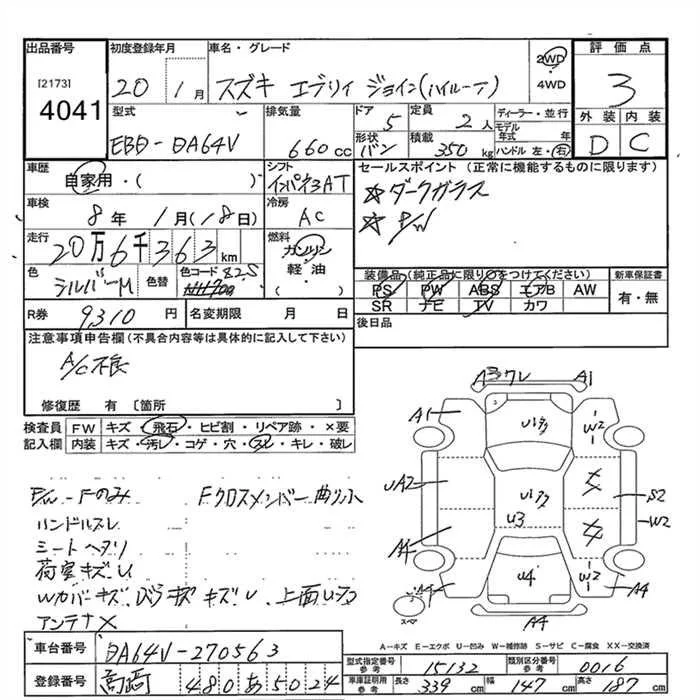 出品番号 初度登録年月 車名・グレード 評価点
[2173]
4041
20 1月 スズキ エブリィ ジョイン(ハイルーフ) 2WD
4WD
3
型式 排気量 ドア 定員 ディーラー・並行 外装 内装
EBD-DA64V 660cc 5 2人 モデル年式 年 D C
形状 バン 積載 350kg ハンドル 左・右
車歴 シフト セールスポイント(正常に機能するものに限ります)
自家用・( ) インパネ3AT ☆ダークガラス
車検 冷房 ☆P/W
8年 1月(18日) AC
走行 燃料
20万6千363km ガソリン
軽油
( )
色 色替 色コード 装備品(純正品に限り○をつけてください) 新車保証書
シルバーM 82S PS PW ABS エアB AW 有・無
SR ナビ TV カワ
R券 9310円 名変期限 月 日 後日品
注意事項申告欄(不具合内容等は具体的に記入して下さい)
A/C不良
修復歴 有 [箇所 ]
検査員 FW キズ・飛石・ヒビ割・リペア跡・×要
記入欄 内装 キズ・汚レ・コゲ・穴・スレ・キレ・破レ
P/W-Fのみ Fクロスメンバー曲り小
ハンドルスレ
シートヘタリ
荷室キズU
Wカバーキズ キズU、上面
アンテナ×
A3 ワレ A1
A1 U177 W2
UA2 U177 S2
U3 W2
A4 U4 W2 A4
スペア A4
A-キズ E-エクボ U-凹み W-補修跡 S-サビ C-腐食 XX-交換済
車台番号 DA64V-270563
登録番号 高崎 480あ5024
型式指定番号 参考 15132 類別区分番号 参考 0016
車庫証明用 参考 長さ 339cm 幅 147cm 高さ 187cm